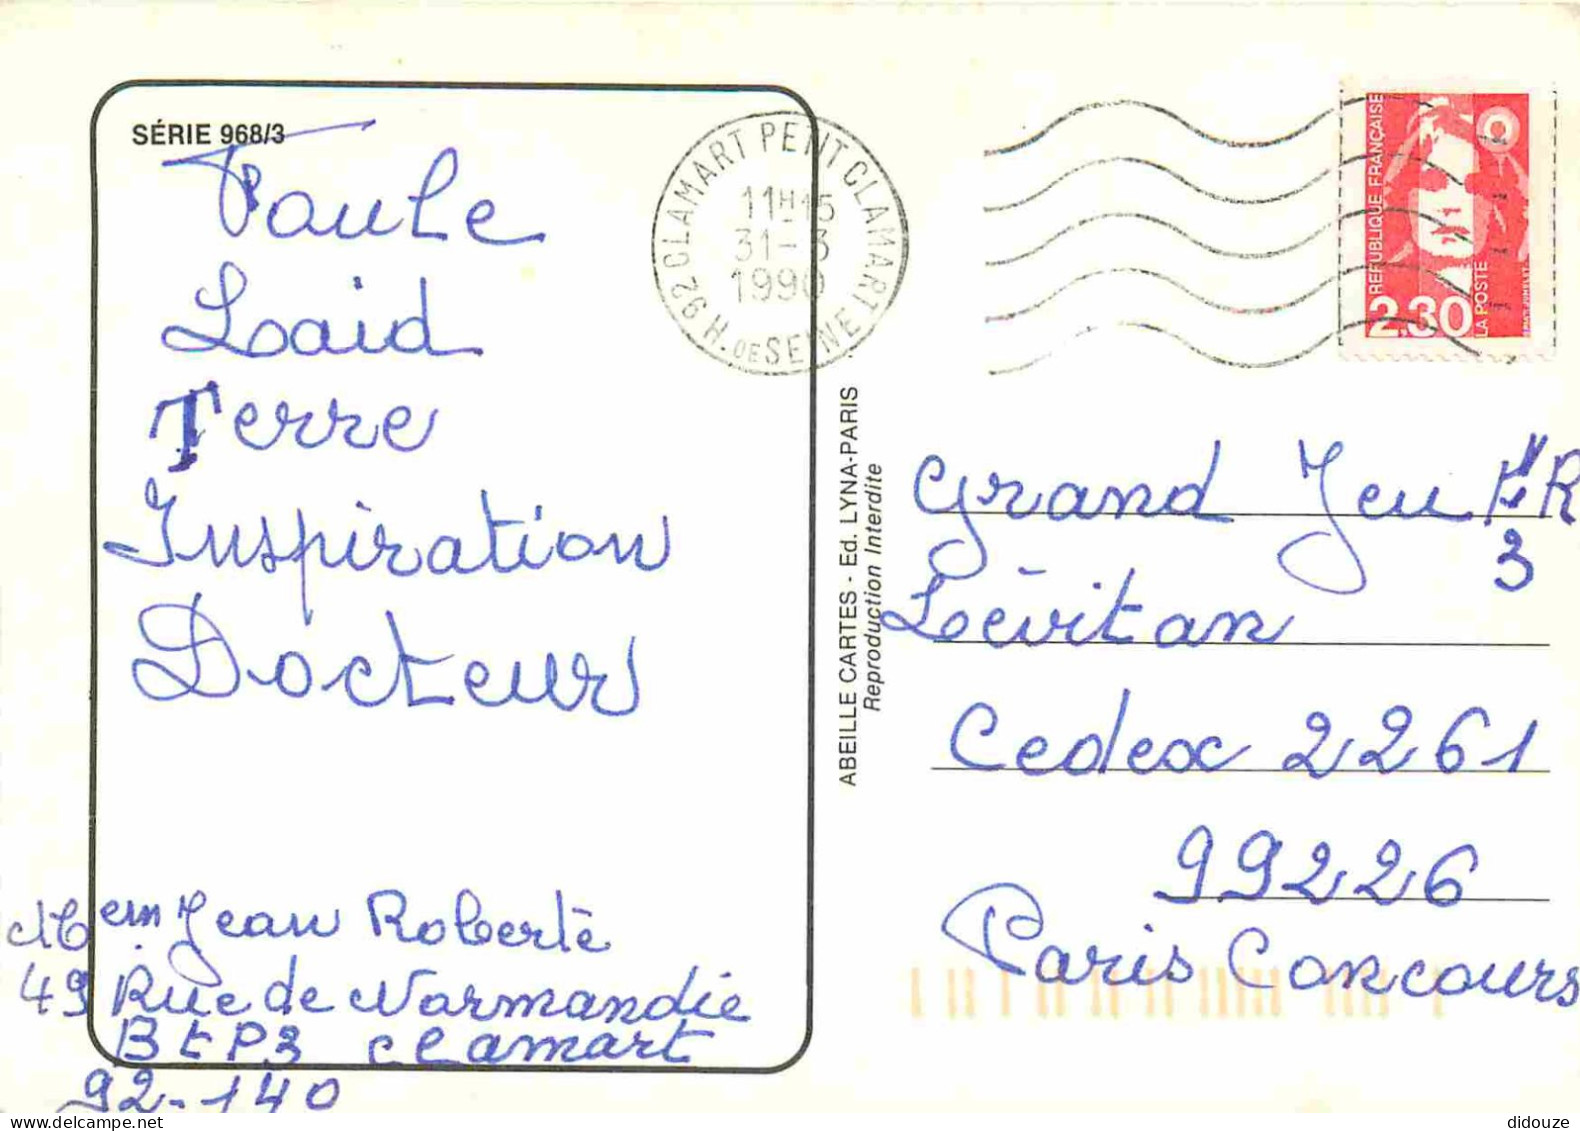 SÉRIE 968/3
Poule
Laid
Terre
Inspiration
Docteur
em Jean Roberte
49 Rue de Normandie
Bt P3 Clamart
92-140
92 CLAMART PETIT CLAMART
11H15
31-3
1990
H. DE SEINE
REPUBLIQUE FRANÇAISE
2,30
LA POSTE
ABEILLE CARTES - Ed. LYNA-PARIS
Reproduction Interdite
Grand Jeu
3
Lévitan
Cedex 2261
99226
Paris Concours
didouze